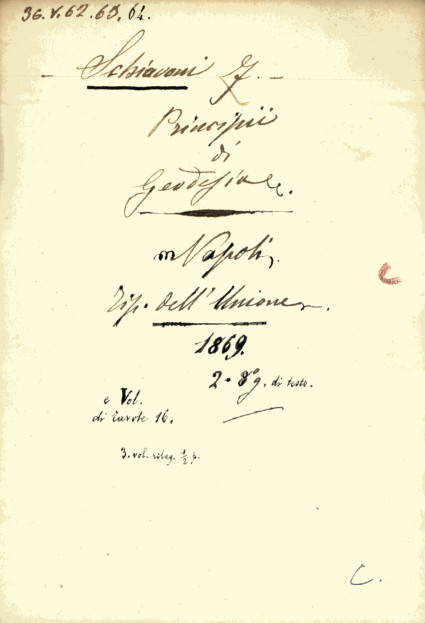 36.V.62.63.64.
Schiavoni F.
Principii
di
Geodesia
Napoli,
Tip. dell'Unione.
1869.
2. 8° g. di testo.
e Vol.
di tavole 16.
3. vol. rileg. 1/2 p.
C
C.